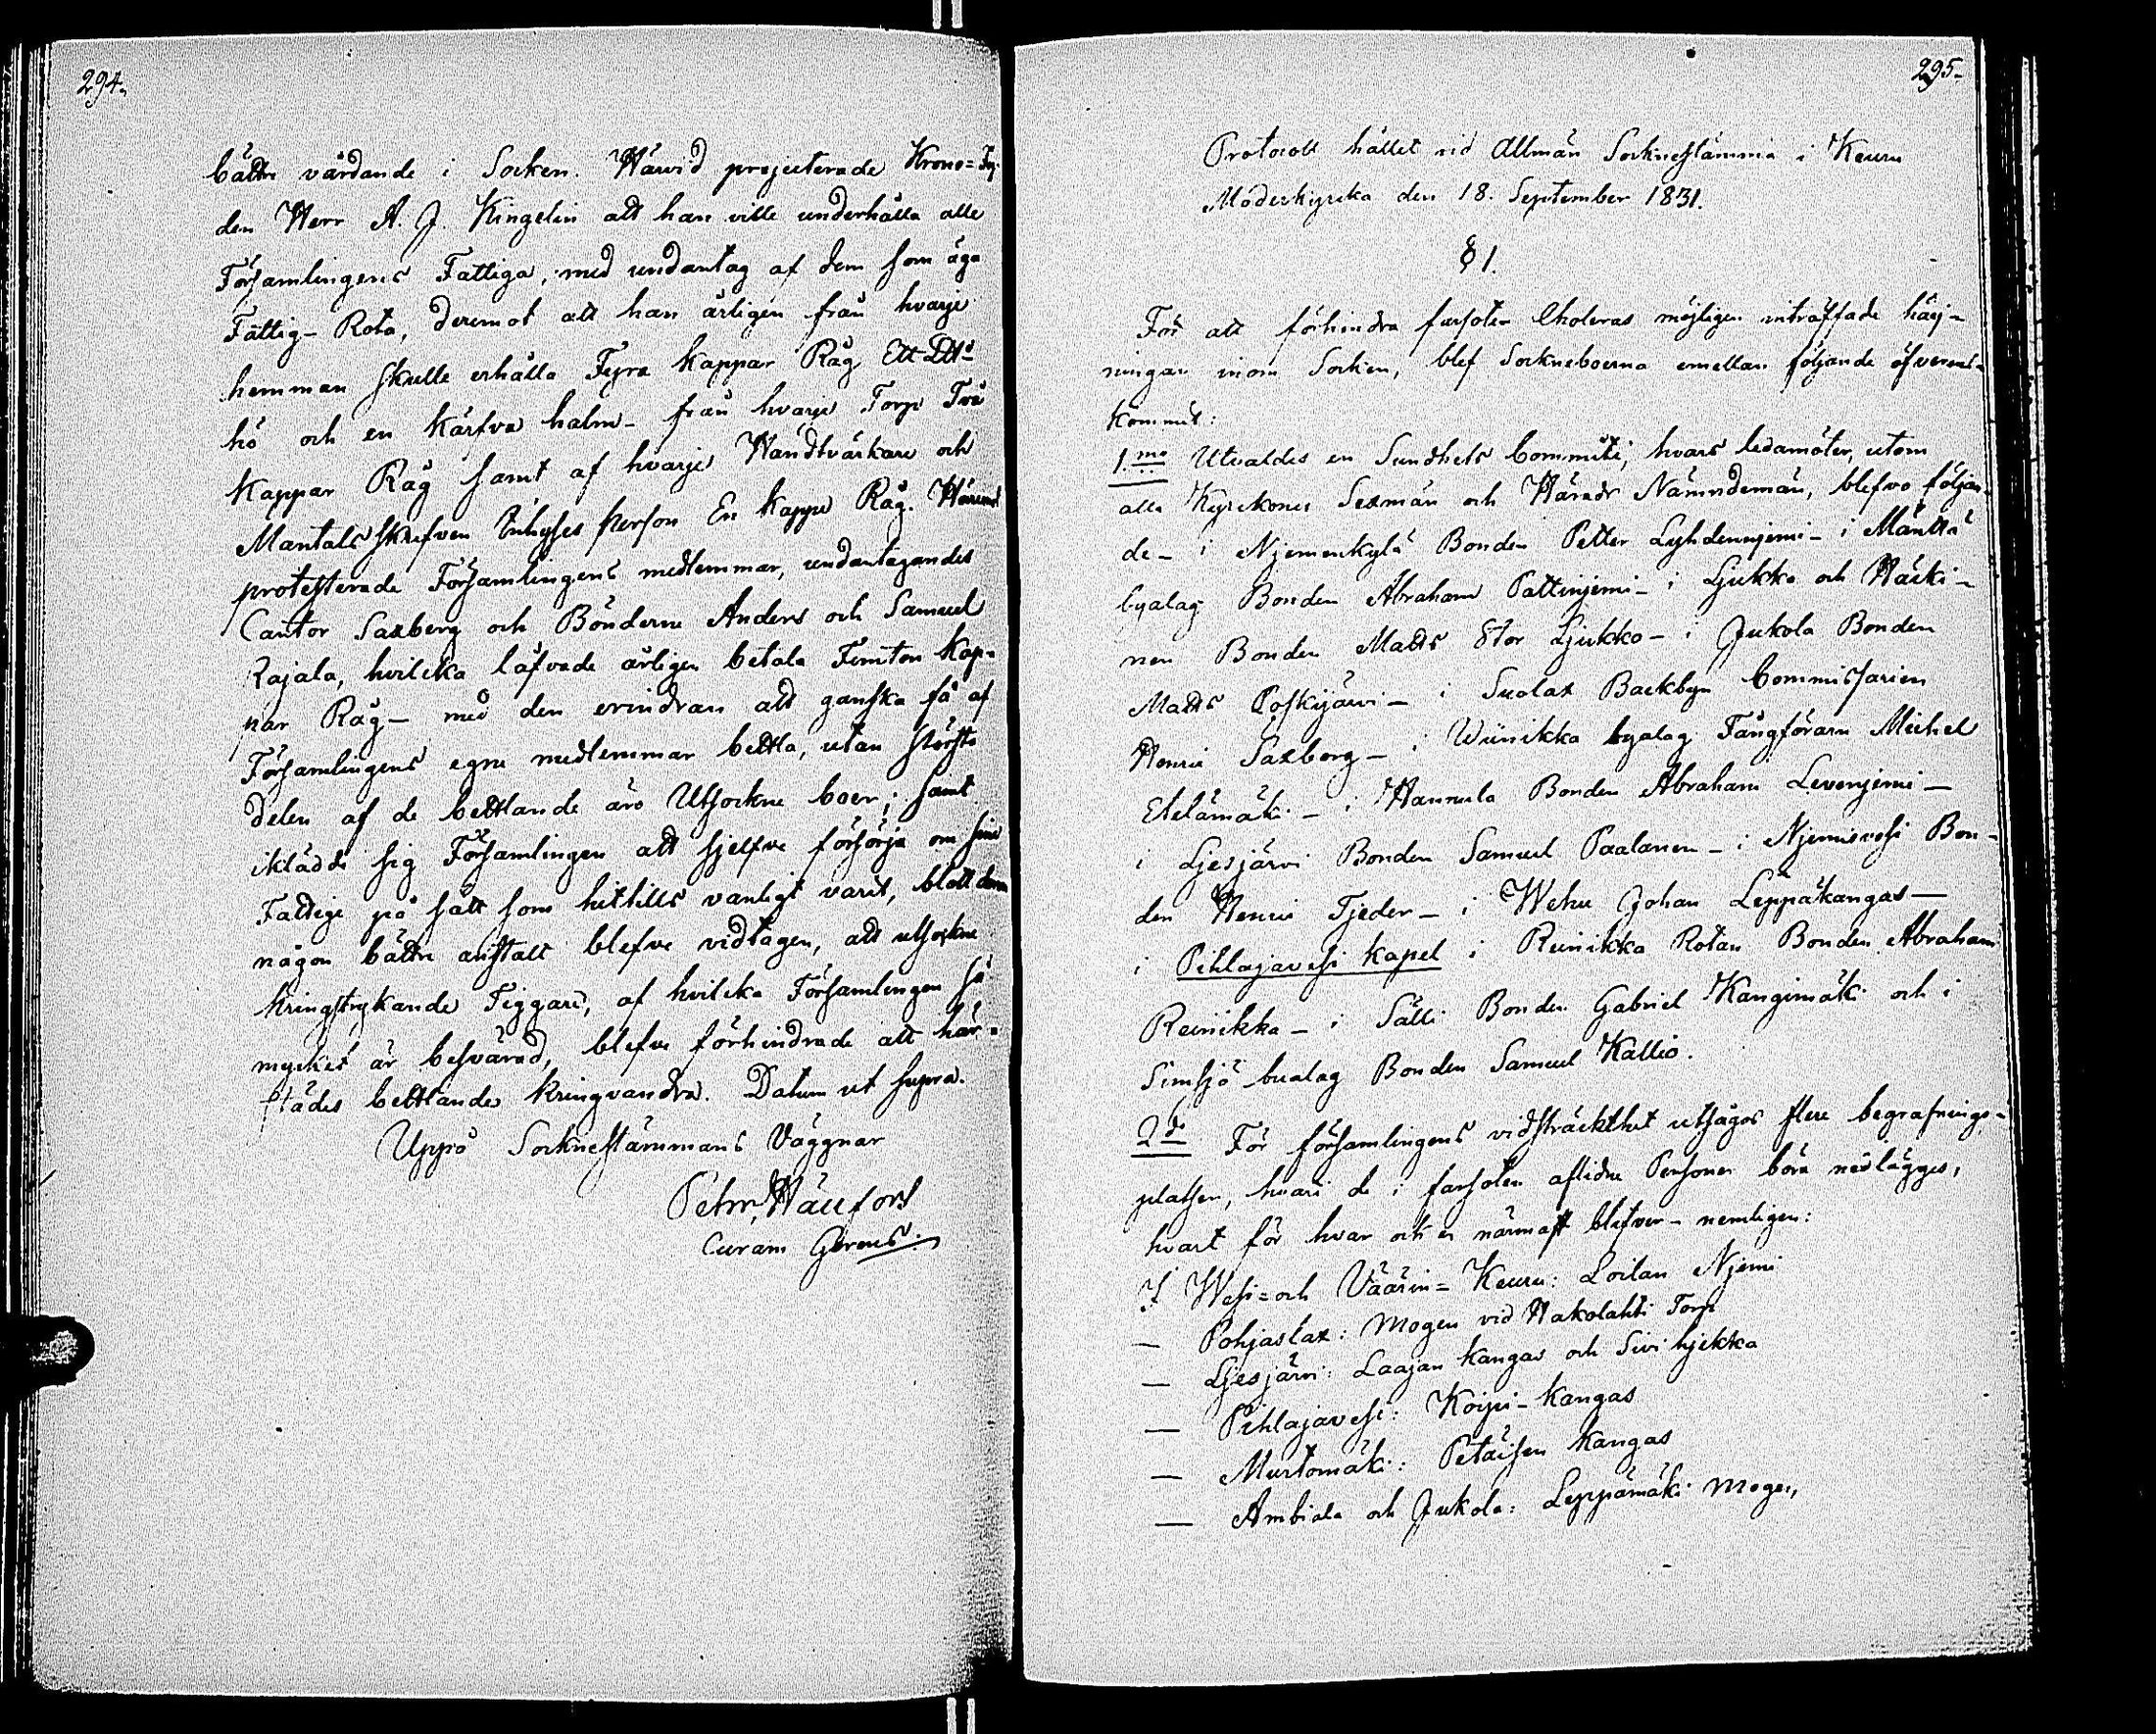 294.
bättre vårdande i Socken. Härvid projecterade Krono=Fog-
den Herr A. J. Kingelin att han ville underhålla alle
Församlingens Fattiga, med undantag af dem som äga
Fattig-Rota, deremot att han årligen från hvarje
hemman skulle erhålla Fyra kappar Råg Ett
hö och en kärfva halm - från hvarje Torp Två
Kappar Råg samt af hvarje Handtvärkare och
Mantalsskrefven Inhyses person En kappe Råg. Häremot
protesterade Församlingens medlemmar, undantagandes
Cantor Saxberg och Bönderne Anders och Samuel
Rajala, hvilcka låfvade årligen betala Femton Kap-
par Råg - med den erindran att ganska få af
Församlingens egne medlemmar bettla, utan största
delen af de bettlande äro Utsockne boer; samt
iklädde sig Församlingen att sjelfve försörja om sine
Fattige på sätt som hittills vanligt varit, blott
någon bättre anstalt blefve vidtagen, att utsockne
kringstrykande Tiggare, af hvilcka Församlingen så
myckit är besvärad, blefve förhindrade att här-
städes bettlande kringvandra. Datum ut supra.
Uppå Socknestämmans Vägnar
Petr. Hällfors
Curam Gerens.
295.
Protocoll hållet vid Allmän Socknestämma i Keuru
Moderkyrcka den 18. September 1831.
§ 1.
För att förhindra farsoten Choleras möjligen inträffade härj-
ningar inom Socken, blef Sockneboerna emellan följande öfverens-
kommit:
1.mo Utvaldes en Sundhets Committé, hvars ledamöter, utom
alla Kyrckones Sexmän och Härads Nämndemän, blefvo följan-
de - i Njemenkylä Bonden Petter Lyhdennjemi - i Mänttä
byalag Bonden Abraham Pattinjemi - i Ljukko och Häcki-
nen Bonden Matts Stor Ljukko - i Jukola Bonden
Matts Poskijärvi - i Suolax Backbyn Commissarien
Henric Saxberg - i Wiinikka byalag Fångföraren Michel
Etelämäki - i Hannula Bonden Abraham Levenjemi -
i Ljesjärvi Bonden Samuel Paalanen - i Njemisvesi Bon-
den Henric Tjeder - i Wehu Johan Leppäkangas -
i Pihlajavesi Kapel i Reinikka Rotan Bonden Abraham
Reinikka - i Sälli Bonden Gabriel Kangimäki och i
Simsjö bualag Bonden Samuel Kallio.
2do För församlingens vidsträckthet utsågos flere begrafnings-
platser, hvari de i farsoten aflidne Personer böra nedläggas,
hvart för hvar och en närmast blefver - nemligen:
I Wesi= och Väärin= Keuru: Loilan Njemi
— Pohjaslax: Mogen vid Hakolahti Torp
— Ljesjärvi: Laajan Kangas och Sivi hjekka
— Pihlajavesi: Koipi-Kangas
— Murtomäki: Petäisen Kangas
— Ambiala och Jukola: Leppämäki Mogen,